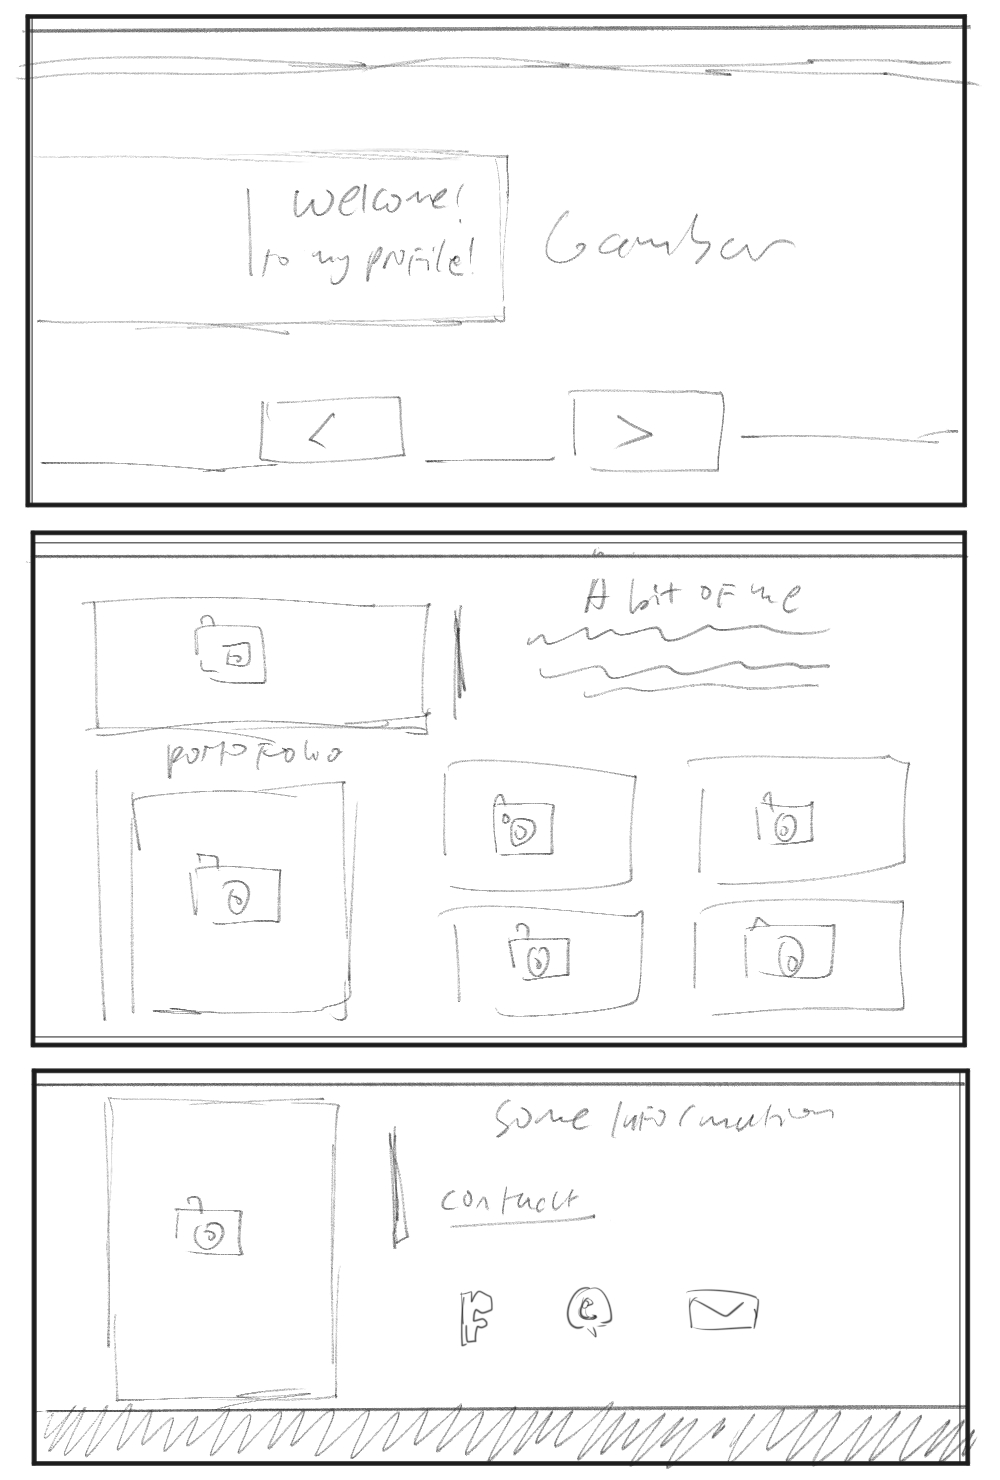 Welcome!
to my profile!
Gambar
<
>
A bit of me
portofolio
Some Information
contact
F